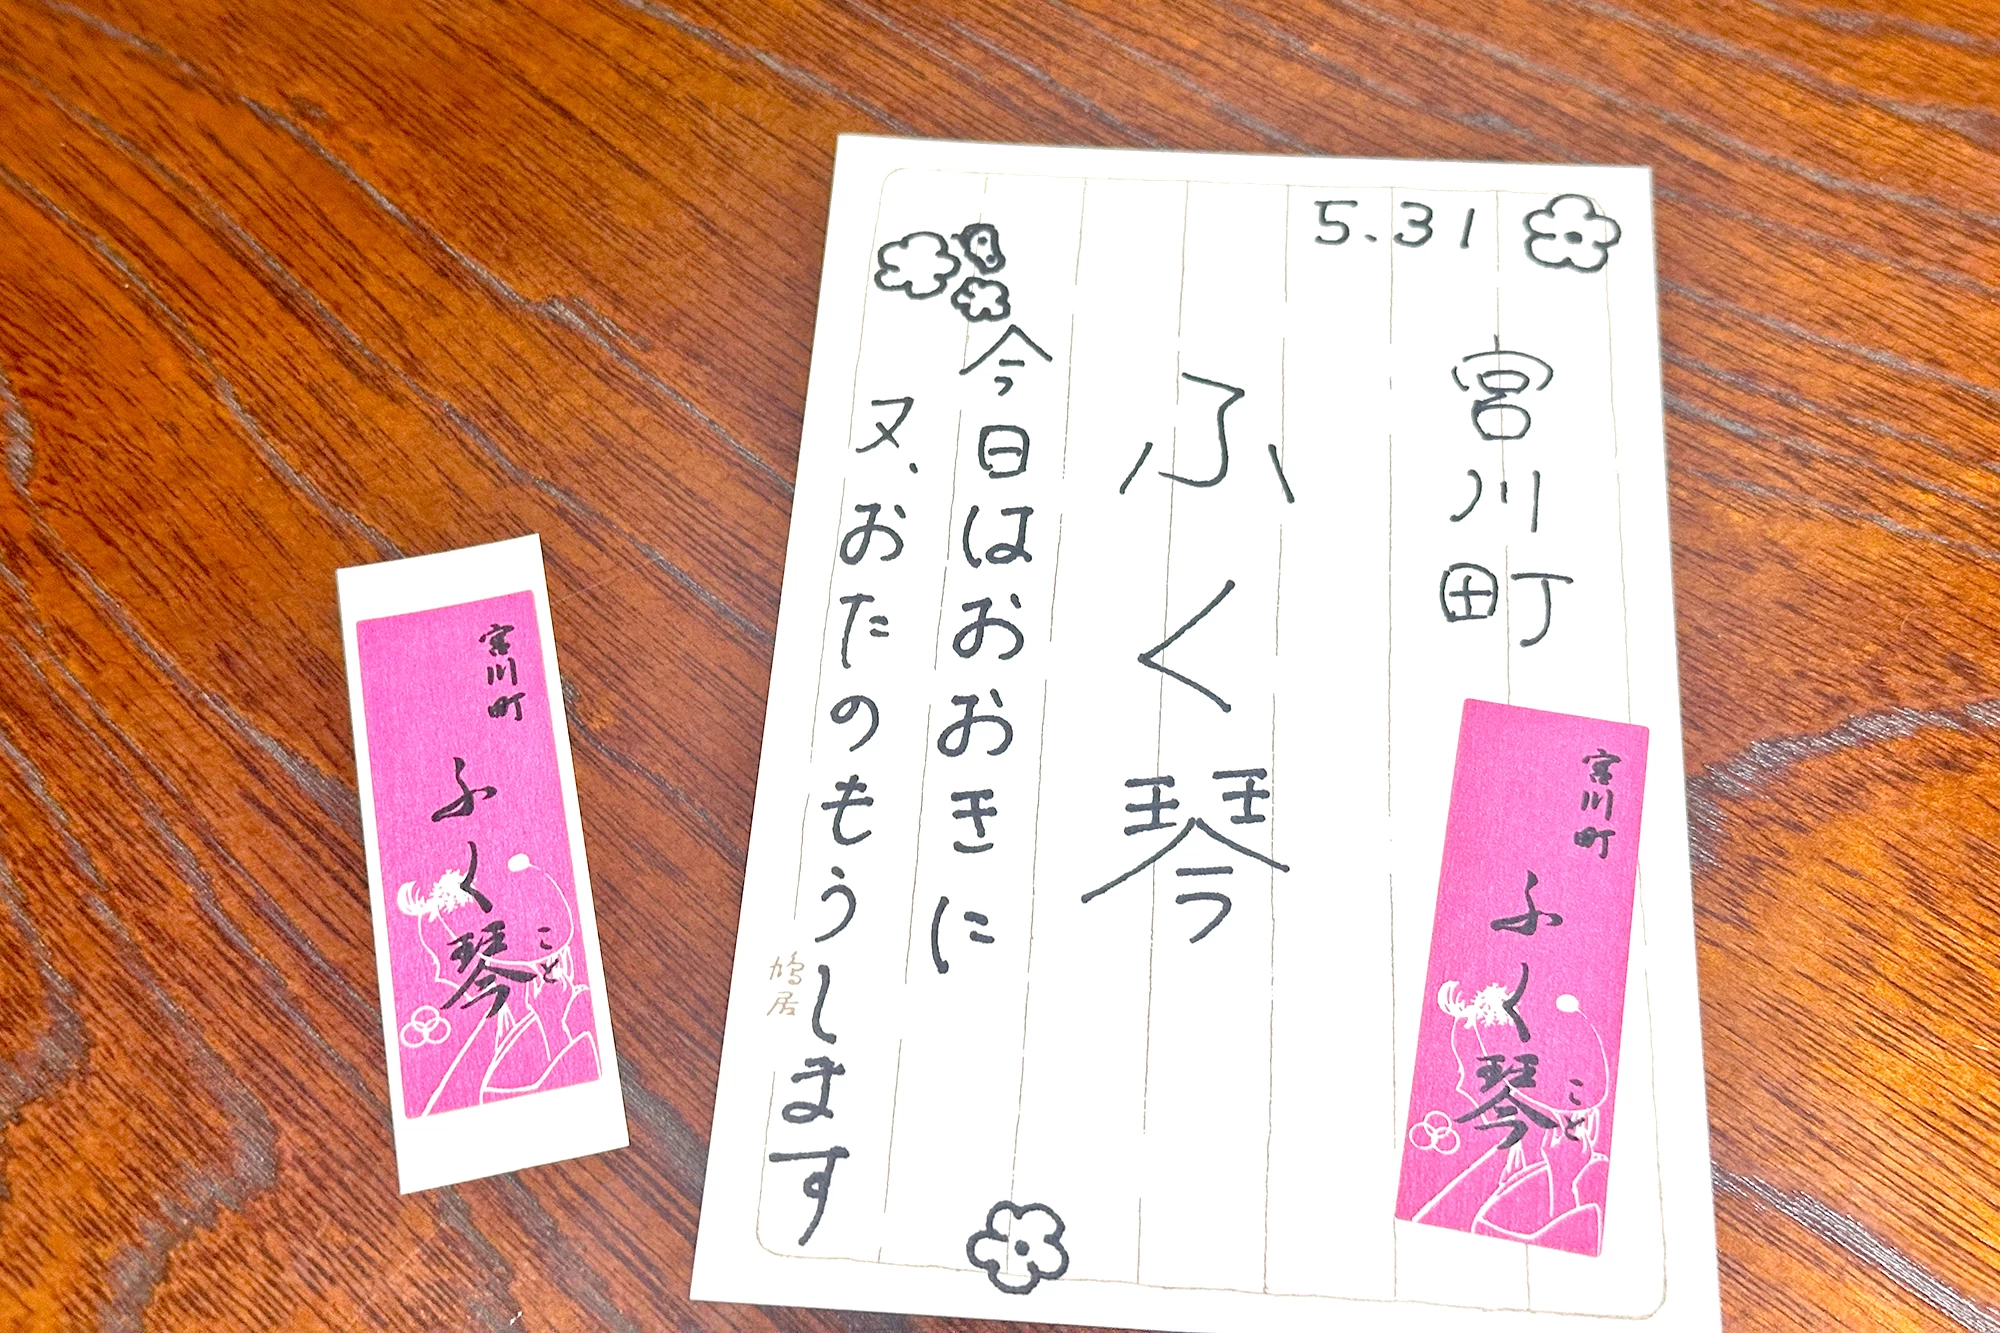 5.31
宮川町
ふく琴
今日はおおきに
又、おたのもうします
鳩居
宮川町
ふく琴
こと
宮川町
ふく琴
こと